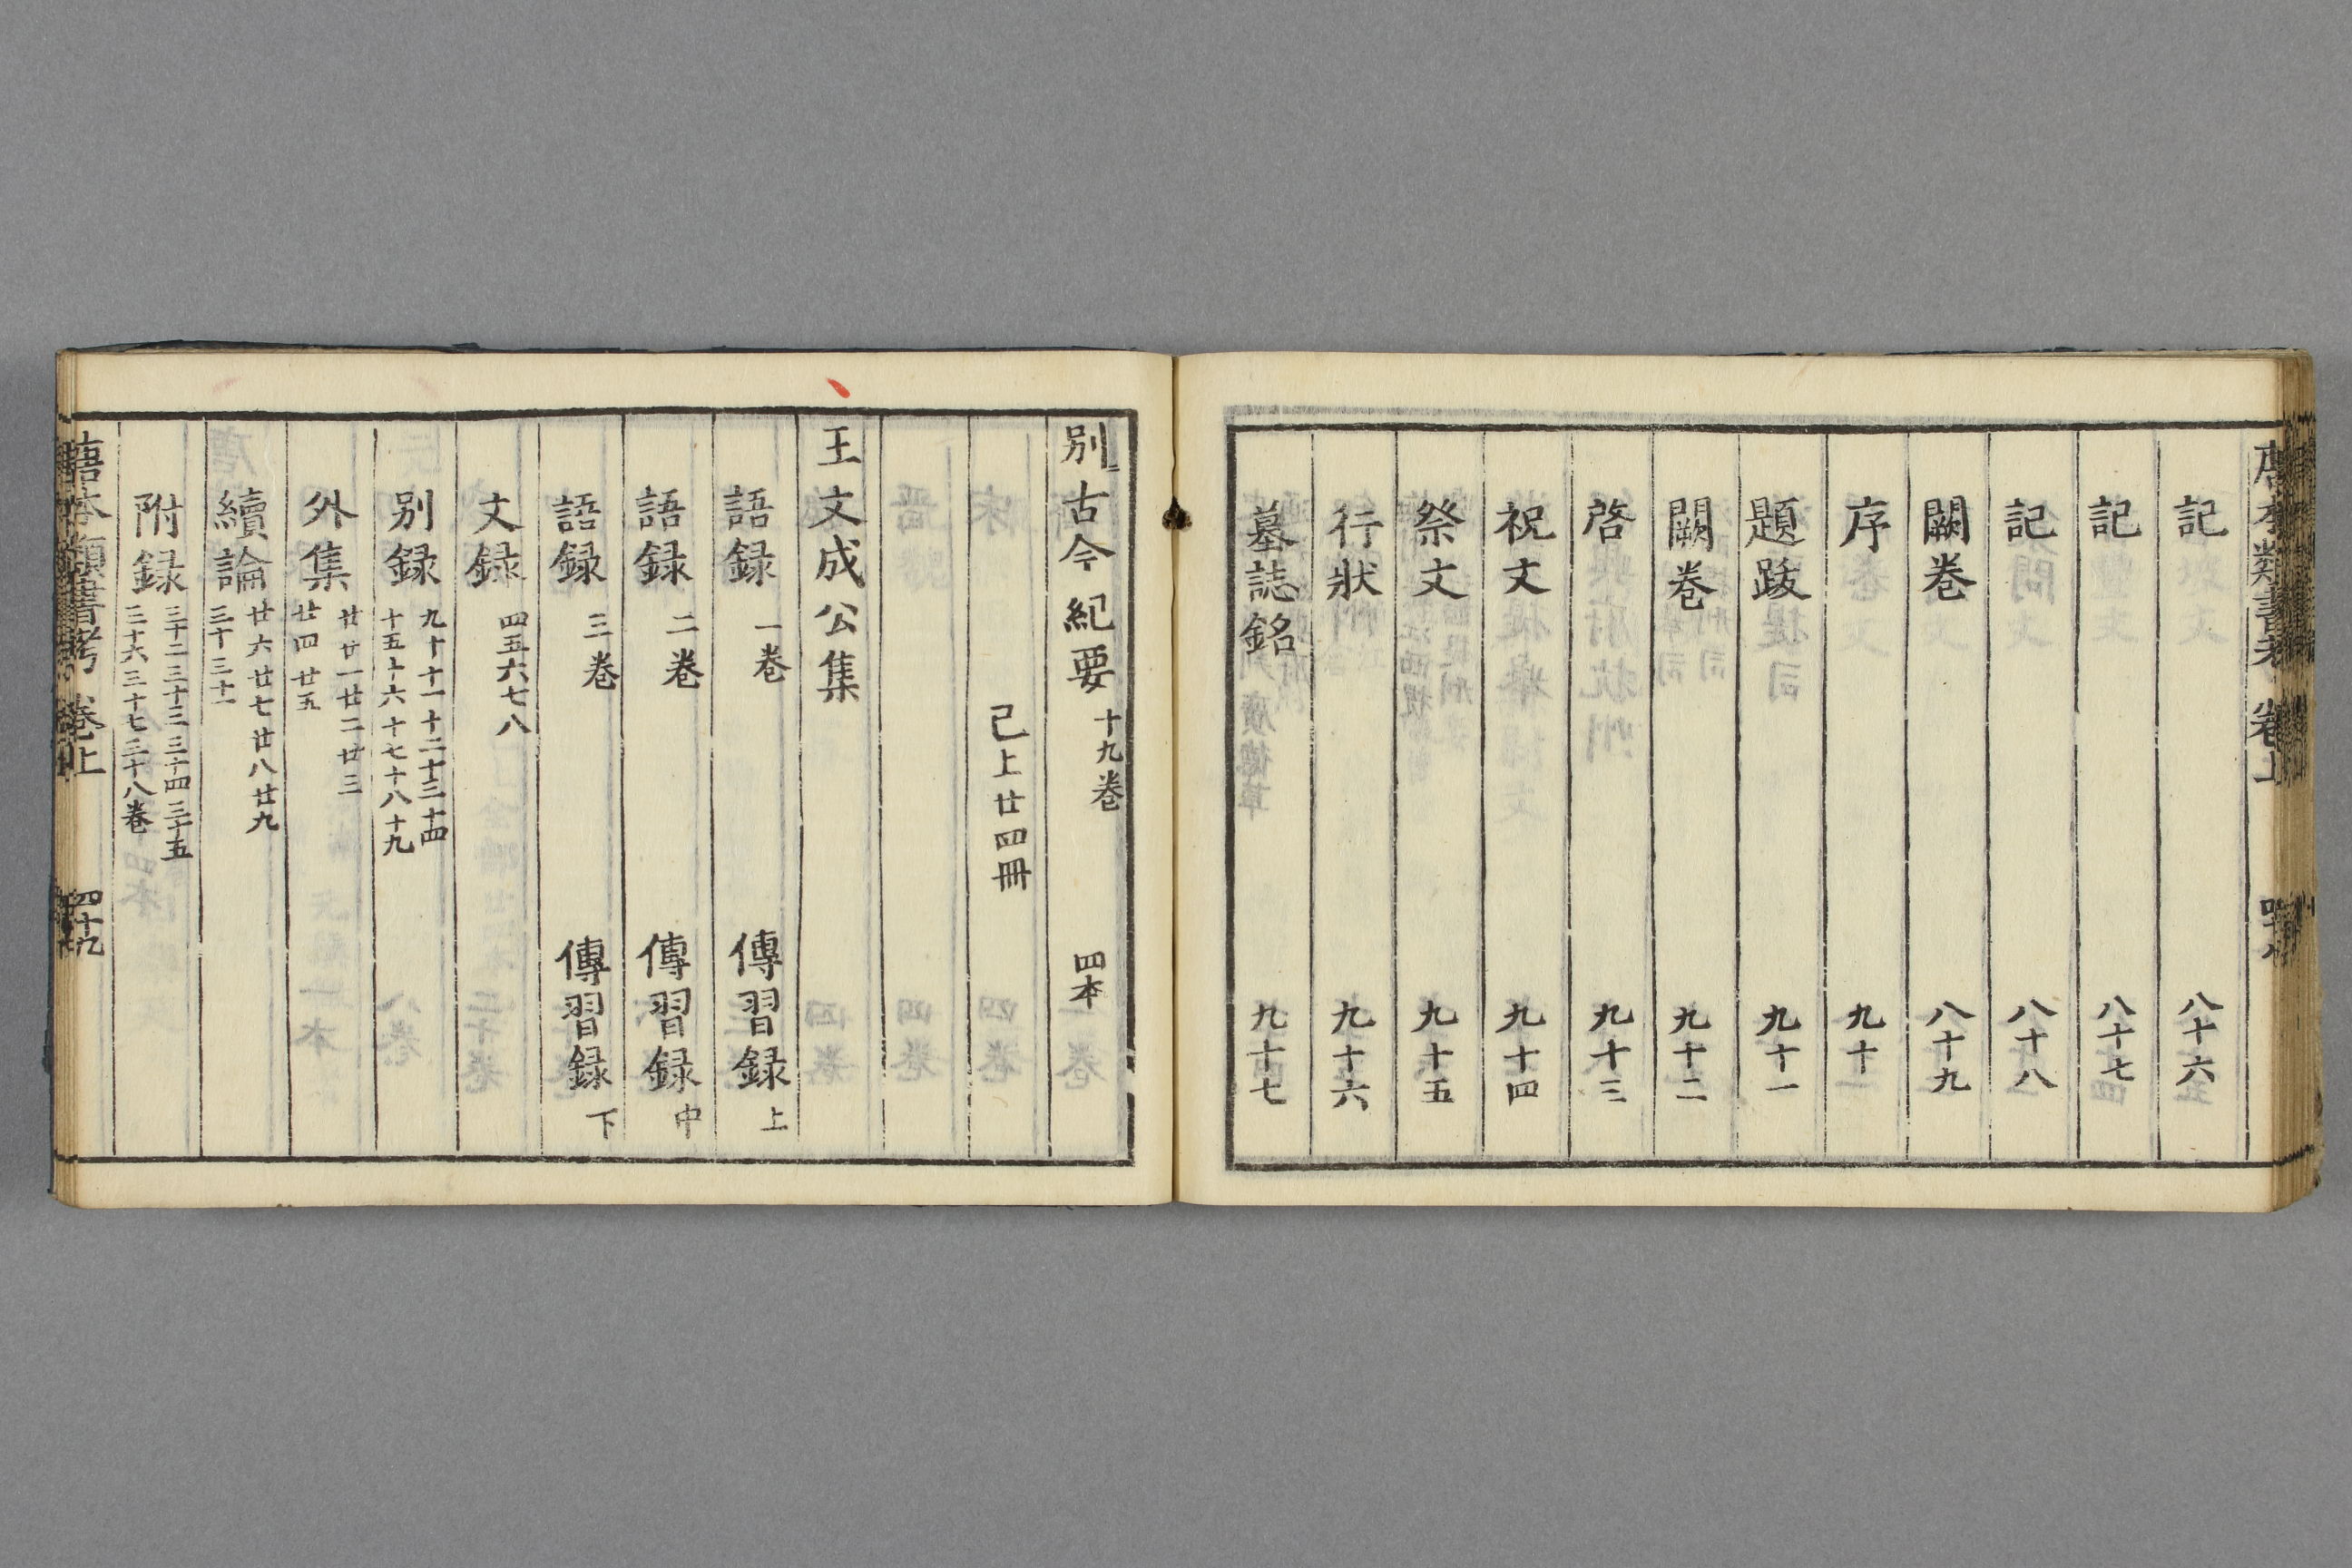 記 八十六
記 八十七
記 八十八
闕巻 八十九
序 九十
題跋 九十一
闕巻 九十二
啓 九十三
祝文 九十四
祭文 九十五
行狀 九十六
墓誌銘 九十七
别古今紀要 十九巻 四本
已上廿四冊
王文成公集
語録 一巻 傳習録上
語録 二巻 傳習録中
語録 三巻 傳習録下
文録 四五六七八
别録 九十十一十二十三十四
十五十六十七十八十九
外集 廿廿一廿二廿三
廿四廿五
續論 廿六廿七廿八廿九
三十三十一
附録 三十二三十三三十四三十五
三十六三十七三十八巻
唐本類書考 巻上 四十九